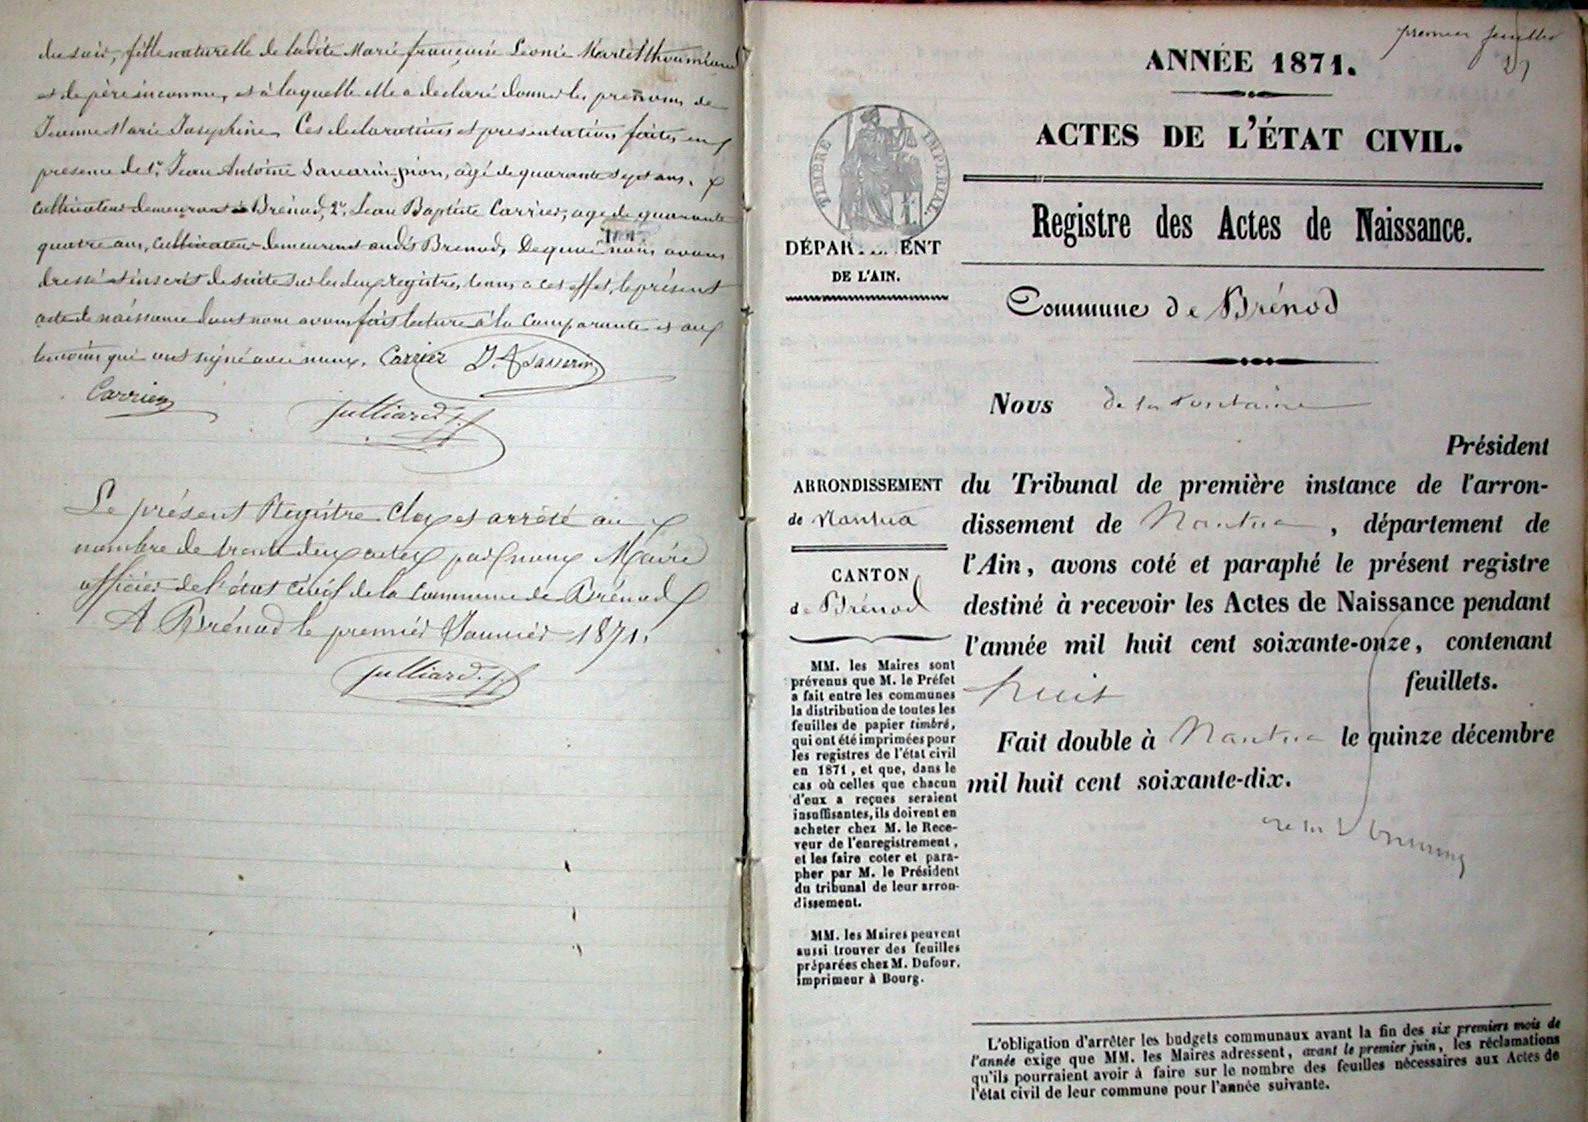 du soir, fille naturelle de ladite Marie françoise Léonie
et de père inconnu, et à laquelle elle a déclaré donner les prénoms de
Jeanne Marie Joséphine. Ces déclarations et présentations faites en
présence de 1°. Jean Antoine Savarin, âgé de quarante sept ans,
cultivateur demeurant à Brénod, 2°. Jean Baptiste Carrier, age de quarante
quatre ans, cultivateur demeurant audit Brénod, De quoi nous avons
dressé et inscrit de suite sur les deux registres tenus a cet effet, le présent
acte de naissance dont nous avons fait lecture à la comparante et aux
témoins qui ont signé avec nous. Carrier J. A Savarin
Carrier
Julliard
Le présent Registre Clos et arrêté au
nombre de trente deux actes par nous Maire
officier de l'état civil de la Commune de Brénod
A Brénod le premier Janvier 1871.
Julliard
premier feuillet
ANNÉE 1871.
ACTES DE L'ÉTAT CIVIL.
TIMBRE IMPÉRIAL
Registre des Actes de Naissance.
DÉPAR ENT
DE L'AIN.
Commune de Brénod
Nous de la
Président
ARRONDISSEMENT
de Nantua
CANTON
de Brénod
du Tribunal de première instance de l'arron-
dissement de Nantua, département de
l'Ain, avons coté et paraphé le présent registre
destiné à recevoir les Actes de Naissance pendant
l'année mil huit cent soixante-onze, contenant
huit feuillets.
Fait double à Nantua le quinze décembre
mil huit cent soixante-dix.
MM. les Maires sont
prévenus que M. le Préfet
a fait entre les communes
la distribution de toutes les
feuilles de papier timbré,
qui ont été imprimées pour
les registres de l'état civil
en 1871, et que, dans le
cas où celles que chacun
d'eux a reçues seraient
insuffisantes, ils doivent en
acheter chez M. le Rece-
veur de l'enregistrement,
et les faire coter et para-
pher par M. le Président
du tribunal de leur arron-
dissement.
MM. les Maires peuvent
aussi trouver des feuilles
préparées chez M. Dufour,
imprimeur à Bourg.
L'obligation d'arrêter les budgets communaux avant la fin des six premiers mois de
l'année exige que MM. les Maires adressent, avant le premier juin, les réclamations
qu'ils pourraient avoir à faire sur le nombre des feuilles nécessaires aux Actes de
l'état civil de leur commune pour l'année suivante.